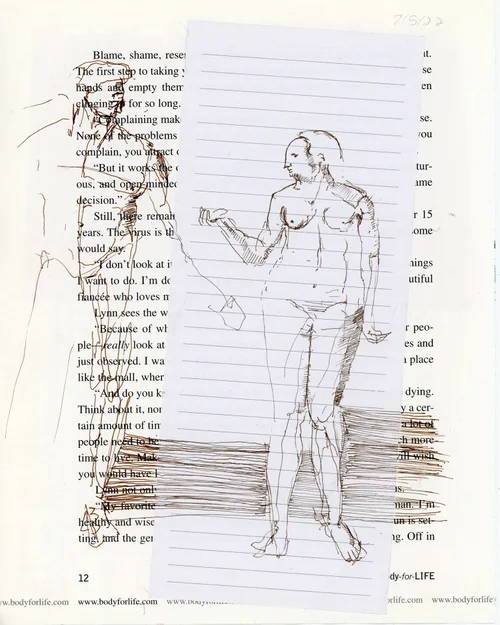 7/5/22
Blame, shame, rese
t.
The first step to taking
se
hands and empty them
en
clinging to for so long.
"Complaining mak
se.
None of the problems
you
complain, you attract
"But it works the
tur-
ous, and open-minded
ame
decision."
Still, there remain
15
years. The virus is th
ome
would say.
"I don't look at it
nings
I want to do. I'm do
utiful
fiancée who loves m
Lynn sees the w
"Because of wh
r peo-
ple—really look at
es and
just observed. I wa
a place
like the mall, wher
"And do you k
dying.
Think about it, nor
y a cer-
tain amount of tim
a lot of
people need to be
ch more
time to live. Mak
ill wish
you would have l
Lynn not only
s.
"My favorite
man. I'm
healthy and wise
un is set-
ting, and the ger
ng. Off in
12
dy-for-LIFE
w.bodyforlife.com www.bodyforlife.com www.bodyforlife.com rlife.com www.bodyforlife